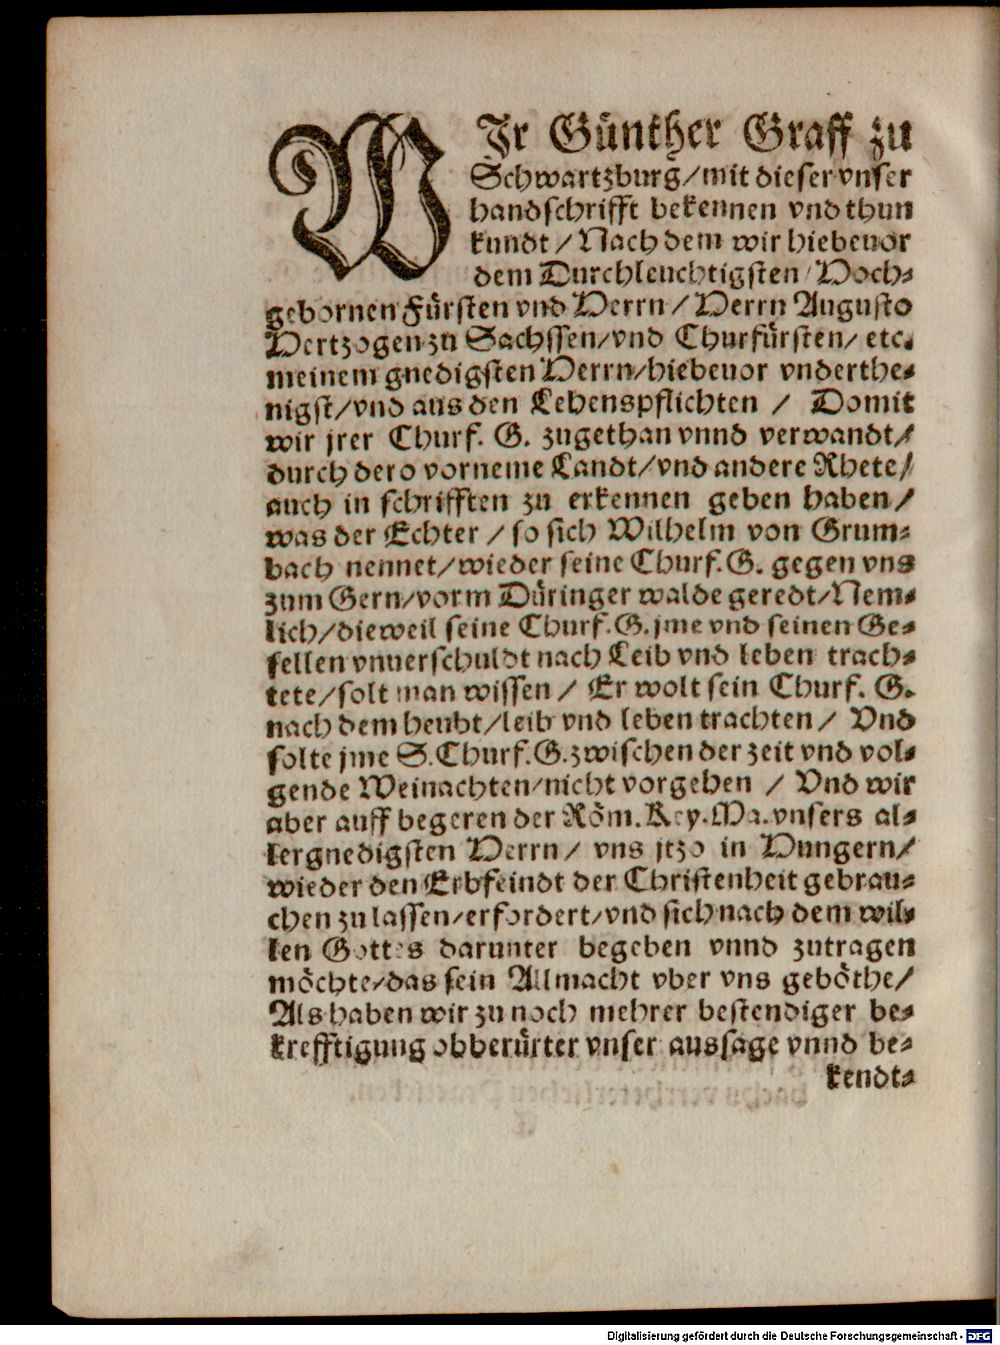 WIr Günther Graff zu
Schwartzburg/mit dieser vnser
handschrifft bekennen vnd thun
kundt/Nach dem wir hiebeuor
dem Durchleuchtigsten/Hoch⸗
gebornen Fürsten vnd Herrn/Herrn Augusto
Hertzogen zu Sachssen/vnd Churfürsten/etc.
meinem gnedigsten Herrn/hiebeuor vnderthe⸗
nigst/vnd aus den Lehenspflichten/Domit
wir jrer Churf. G. zugethan vnnd verwandt/
durch dero vorneme Landt/vnd andere Rhete/
auch in schrifften zu erkennen geben haben/
was der Echter/so sich Wilhelm von Grum⸗
bach nennet/wieder seine Churf. G. gegen vns
zum Gern/vorm Düringer walde geredt/Nem⸗
lich/dieweil seine Churf. G. jme vnd seinen Ge⸗
sellen vnuerschuldt nach Leib vnd leben trach⸗
tete/solt man wissen/Er wolt sein Churf. G.
nach dem heubt/leib vnd leben trachten/Vnd
solte jme S. Churf. G. zwischen der zeit vnd vol⸗
gende Weinachten/nicht vorgehen/Vnd wir
aber auff begeren der Röm. Key. Ma. vnsers al⸗
lergnedigsten Herrn/vns jtzo in Hungern/
wieder den Erbfeindt der Christenheit gebrau⸗
chen zu lassen/erfordert/vnd sich nach dem wil⸗
len Gottes darunter begeben vnnd zutragen
möchte/das sein Allmacht vber vns geböthe/
Als haben wir zu noch mehrer bestendiger be⸗
krefftigung obberürter vnser aussage vnnd be⸗
kendt⸗
Digitalisierung gefördert durch die Deutsche Forschungsgemeinschaft - DFG